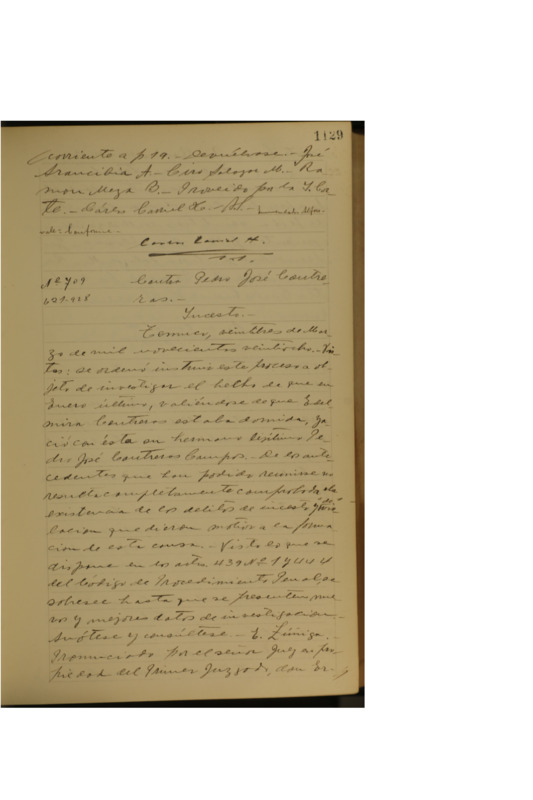 1129
corriente a f 19.- Devuélvase.- José
Arancibia A.- Ciro Salazar M.- Ra
mon Meza R.- Proveido por la I. Cor
te.-
Conforme.-
Nº 709 Contra Pedro José Contre
ras.-
Incesto.-
Temuco, veintitres de Mar
zo de mil novecientos veintiocho.- Vis
tos: se ordenó instruir este proceso a ob
jeto de investigar el hecho de que en
Enero último, valiéndose de que Edel
mira Contreras estaba dormida, ya
ció con ésta su hermano lejitimo Pe
dro José Contreras Campos.- De los ante
cedentes que han podido reunirse no
resulta completamente comprobada la
existencia de los delitos de incesto y vio
lacion que dieron motivo a la forma
cion de esta causa.- Visto lo que se
dispone en los arts. 439 Nº 1 y 444
del Código de Procedimiento Penal, se
sobresee hasta que se presenten nue
vos y mejores datos de investigacion.-
Anótese y consúltese.- E. Zúñiga.-
Pronunciado por el señor Juez en pro
piedad del Primer Juzgado, don Er-